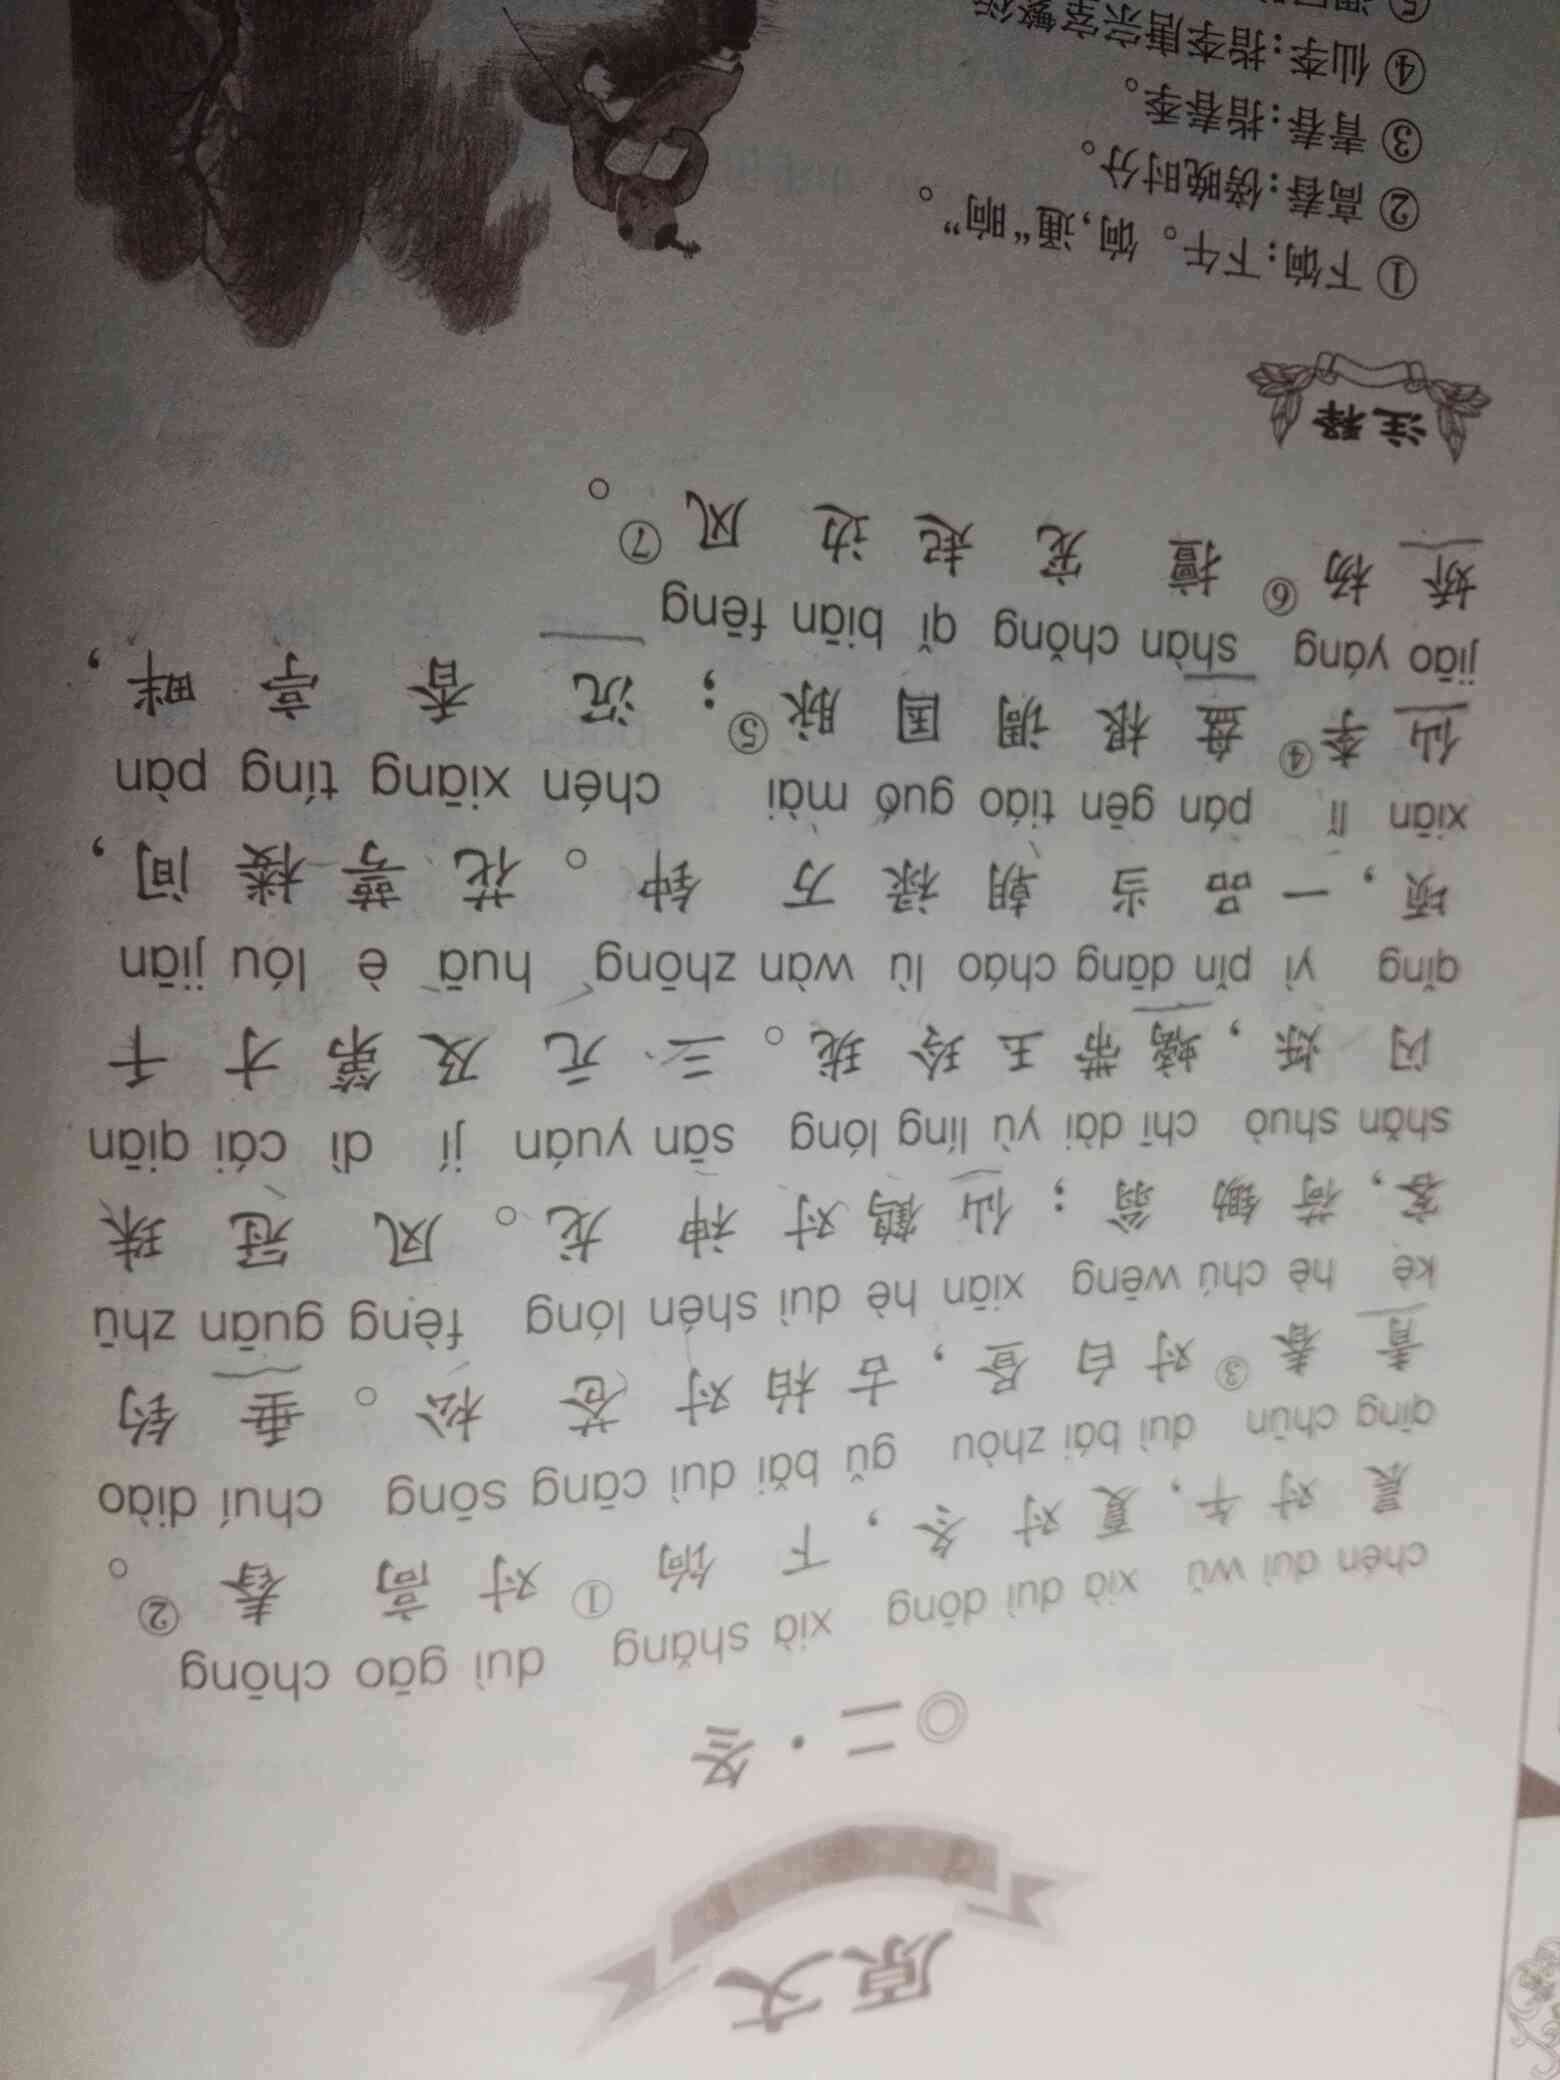 原文
◎二·冬
chén duì wǔ xià duì dōng xià shǎng duì gāo chōng
晨对午，夏对冬，下饷①对高舂②。
qīng chūn duì bái zhòu gǔ bǎi duì cāng sōng chuí diào
青春③对白昼，古柏对苍松。垂钓
kè hè chú wēng xiān hè duì shén lóng fèng guān zhū
客，荷锄翁；仙鹤对神龙。凤冠珠
shǎn shuò chī dài yù líng lóng sān yuán jí dì cái qiān
闪烁，螭带玉玲珑。三元及第才千
qǐng yì pǐn dāng cháo lù wàn zhōng huā è lóu jiān
顷，一品当朝禄万钟。花萼楼间，
xiān lǐ pán gēn tiáo guó mài chén xiāng tíng pàn
仙李④盘根调国脉⑤；沉香亭畔，
jiāo yáng shàn chǒng qǐ biān fēng
娇杨⑥擅宠起边风⑦。
注释
① 下饷：下午。饷，通“晌”。
② 高舂：傍晚时分。
③ 青春：指春季。
④ 仙李：指李唐宗室繁衍
⑤